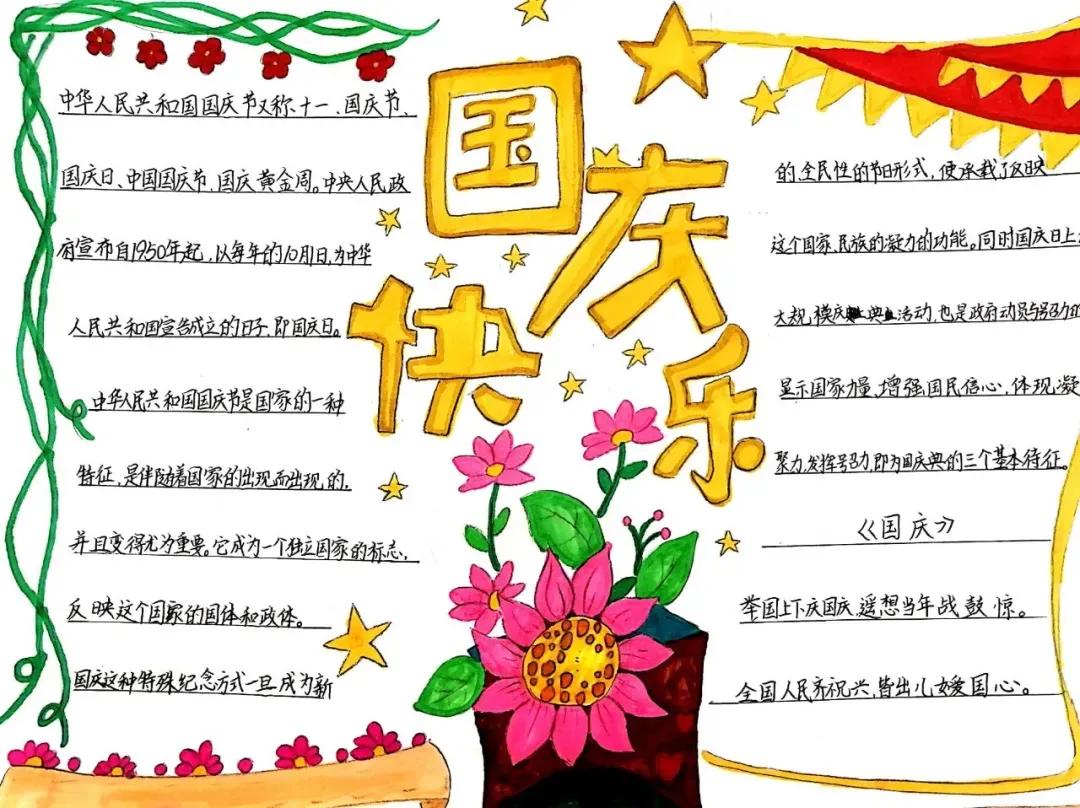 国庆快乐
中华人民共和国国庆节又称十一、国庆节、
国庆日、中国国庆节、国庆黄金周。中央人民政
府宣布自1950年起，以每年的10月1日，为中华
人民共和国宣告成立的日子，即国庆日。
中华人民共和国国庆节是国家的一种
特征，是伴随着国家的出现而出现的，
并且变得尤为重要。它成为一个独立国家的标志，
反映这个国家的国体和政体。
国庆这种特殊纪念方式一旦成为新
的、全民性的节日形式，便承载了反映
这个国家、民族的凝力的功能。同时国庆日上
大规模庆典活动，也是政府动员与号召力的
显示国家力量，增强国民信心，体现凝
聚力，发挥号召力，即为国庆典的三个基本特征。
《国庆》
举国上下庆国庆，遥想当年战鼓惊。
全国人民齐祝兴，皆出儿女爱国心。